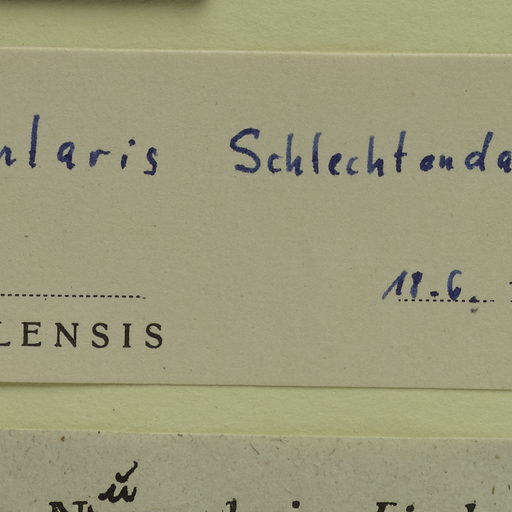 nlaris Schlechtenda
18.6.
LENSIS